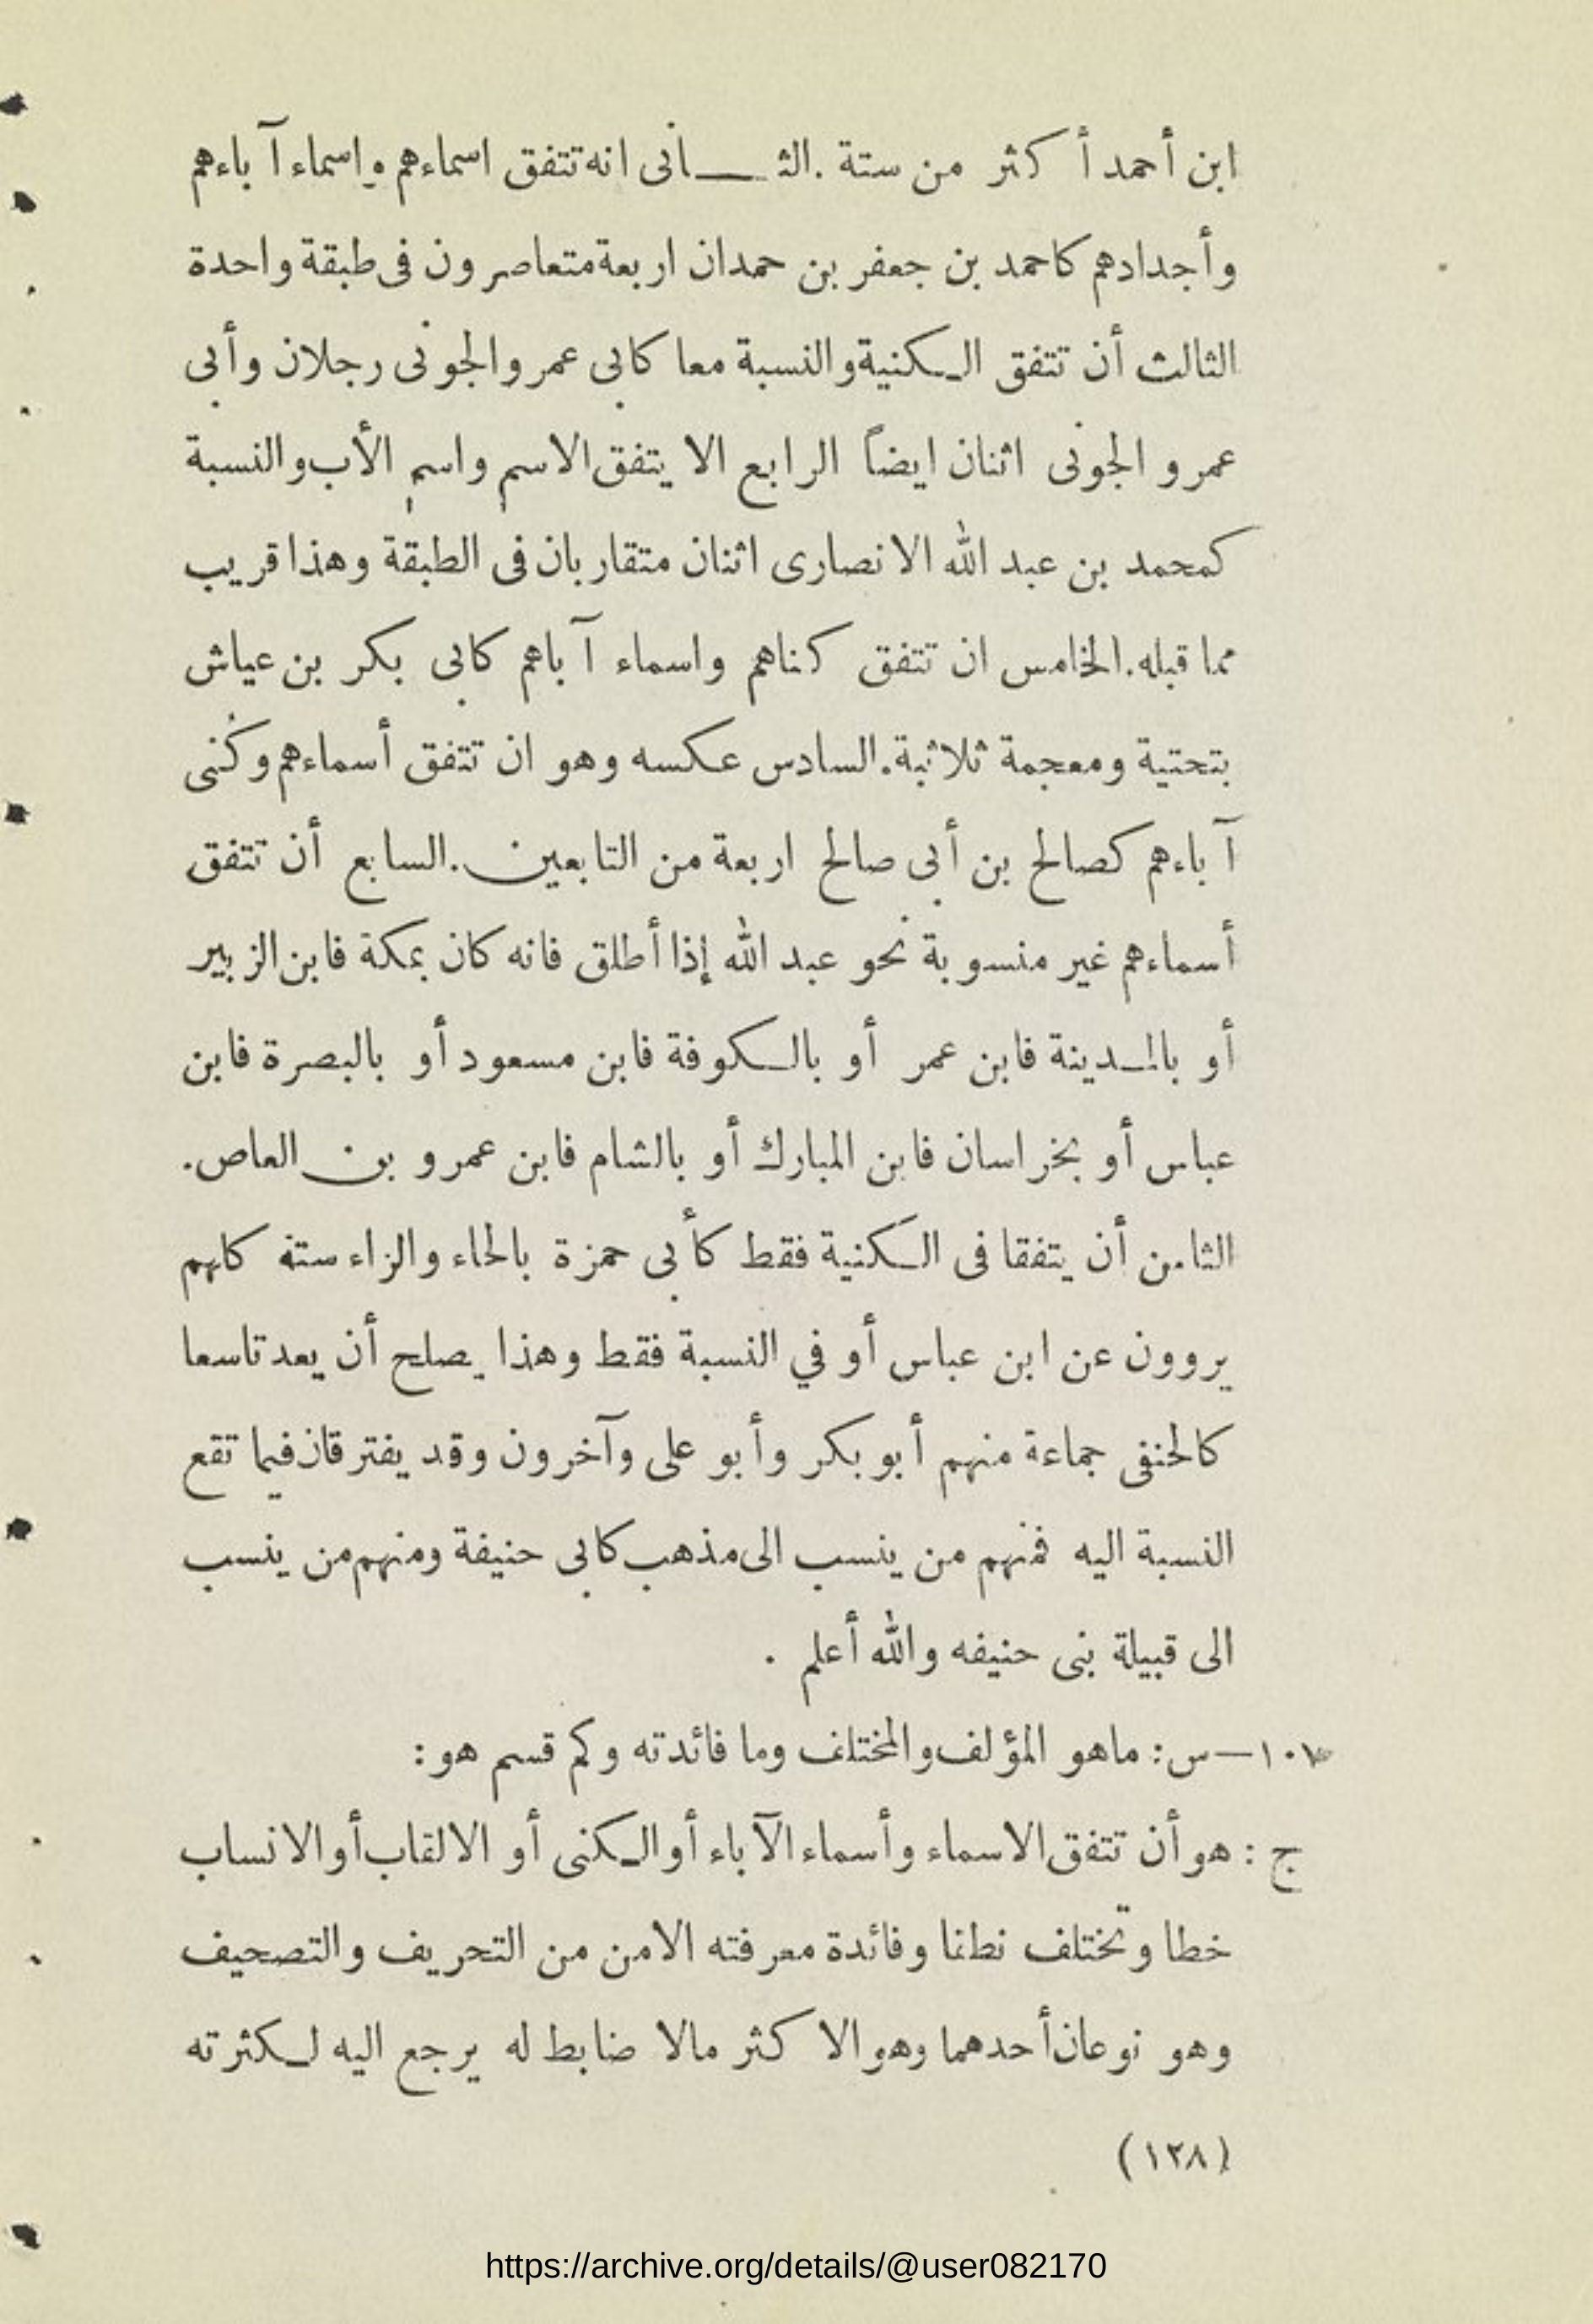 ابن أحمد أكثر من ستة. الثـــانى انه تتفق اسماءهم واسماء آباءهم
وأجدادهم كاحمد بن جعفر بن حمدان اربعة متعاصرون فى طبقة واحدة
الثالث أن تتفق الكنية والنسبة معا كابى عمر والجونى رجلان وأبى
عمرو الجونى اثنان ايضاً الرابع الا يتفق الاسم واسم الأب والنسبة
كمحمد بن عبد الله الانصارى اثنان متقاربان فى الطبقة وهذا قريب
مما قبله. الخامس ان تتفق كناهم واسماء آباهم كابى بكر بن عياش
بتحتية ومعجمة ثلاثية. السادس عكسه وهو ان تتفق أسماءهم وكُنى
آباءهم كصالح بن أبى صالح اربعة من التابعين. السابع أن تتفق
أسماءهم غير منسوبة نحو عبد الله إذا أطلق فانه كان بمكة فابن الزبير
أو بالمـدينة فابن عمر أو بالـكوفة فابن مسعود أو بالبصرة فابن
عباس أو بخراسان فابن المبارك أو بالشام فابن عمرو بن العاص.
الثامن أن يتفقا فى الـكنية فقط كأبى حمزة بالحاء والزاء ستة كلهم
يروون عن ابن عباس أو في النسبة فقط وهذا يصلح أن يعد تاسعا
كالحنفى جماعة منهم أبو بكر وأبو على وآخرون وقد يفترقان فيما تقع
النسبة اليه فمنهم من ينسب الى مذهب كابى حنيفة ومنهم من ينسب
الى قبيلة بنى حنيفه والله أعلم .
١٠٧—س: ماهو المؤلف والمختلف وما فائدته وكم قسم هو:
ج : هو أن تتفق الاسماء وأسماء الآباء أو الـكنى أو الالقاب أو الانساب
خطا وتختلف نطقا وفائدة معرفته الامن من التحريف والتصحيف
وهو نوعان أحدهما وهو الاكثر مالا ضابط له يرجع اليه لـكثرته
(١٢٨)
https://archive.org/details/@user082170